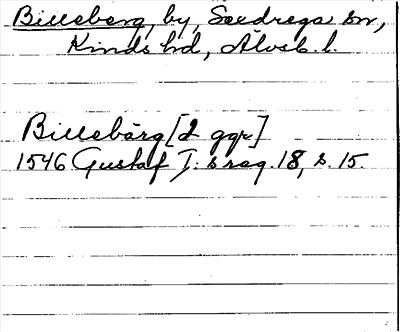 Billeberg, by, Seedrega sn,
Kinds hd, Älvsb. l.
Billebärg [2 ggr]
1546 Gustaf I:s reg. 18, s. 15.